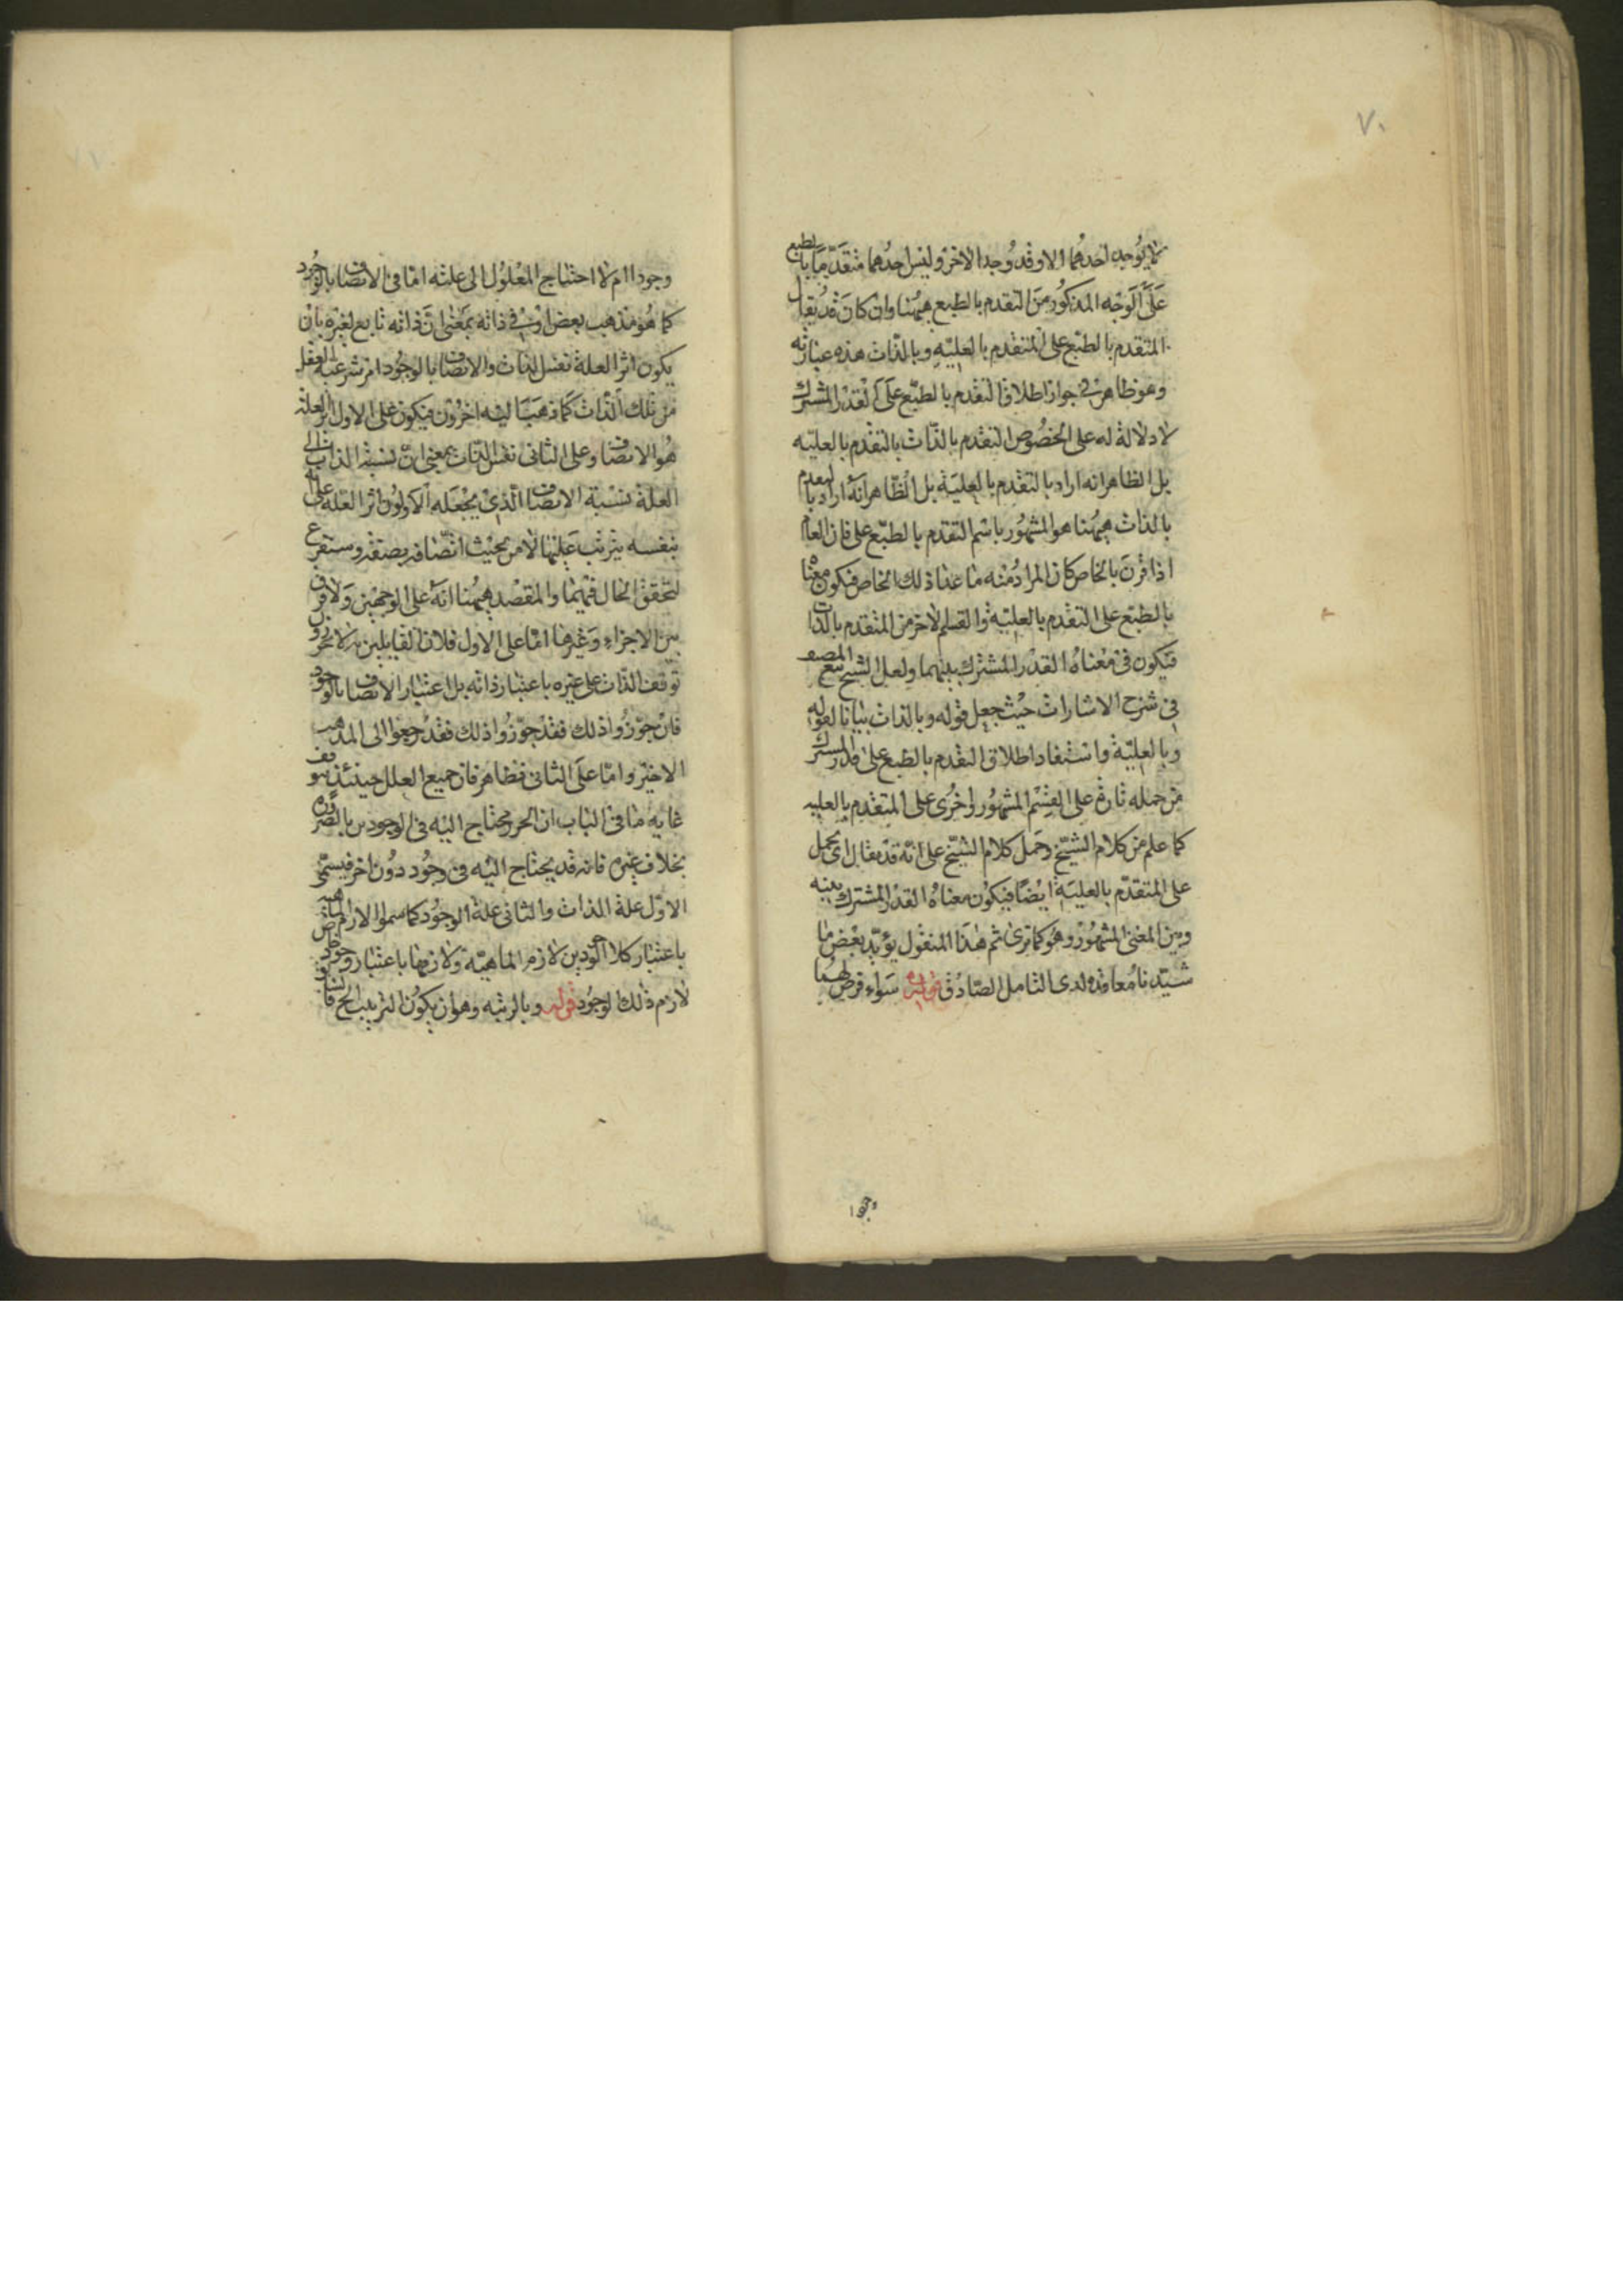 ٧٠
لا يوجد احدهما الا وقد وجد الاخر وليس احدهما متقدما بالطبع
على الوجه المذكور من التقدم بالطبع ههنا وان كان قد يقال
المتقدم بالطبع على المتقدم بالعليّة وبالذات هذه عبارته
وهو ظاهر في جواز اطلاق التقدم بالطبع على القدر المشترك
لا دلالة له على الخصوص التقدم بالذات بالتقدم بالعليّه
بل الظاهر انه اراد بالتقدم بالعليّة بل الظاهر انه اراد بالتقدم
بالذات ههنا هو المشهور باسم التقدم بالطبع على فان العام
اذا قرن بالخاص كان المراد منه ما عدا ذلك الخاص فيكون معناه
بالطبع على التقدم بالعليّة والقسم الاخر من المتقدم بالذات
فيكون في معناه القدر المشترك بينهما ولعل الشيخ تبع المصنف
في شرح الاشارات حيث جعل قوله وبالذات بيانا لقوله
وبالعليّة واستفاد اطلاق التقدم بالطبع على قدر المشترك
من حمله تارة على القسم المشهور واخرى على المتقدم بالعليه
كما علم من كلام الشيخ وحمل كلام الشيخ على انّه قد يقال اى يحمل
على المتقدّم بالعليّة ايضا فيكون معناه القدر المشترك بينه
وبين المعنى المشهور وهو كما ترى ثم هذا المنقول يؤيّد بعض ما
شيّدنا معاقده لدى التامل الصادق قوله سواء فرض لهما
وجودا
وجودا ام لا احتياج المعلول الى علته اما في الاتصاف بالوجود
كما هو مذهب بعض او في ذاته بمعنى ان ذاته تابع لغيره بان
يكون اثر العلة نفس الذات والاتصاف بالوجود امر ينتزعه العقل
من تلك الذات كما ذهب اليه اخرون فيكون على الاول اثر العلة
هو الاتصاف وعلى الثانى نفس الذات بمعنى انّ نسبة الذات الى
العلة نسبة الاتصاف الذي يجعله الاولون اثر العلة على انه
بنفسه يترتب عليها لا من حيث اتصافه بصفة وستقرع
لتحقق الحال فيهما والمقصد ههنا انه على الوجهين ولا فرق
بين الاجزاء وغيرها امّا على الاول فلان القايلين به لا يجوزون
توقف الذات على غيره باعتبار ذاته بل اعتبار الاتصاف بالوجود
فان جوّزوا ذلك فقد جوّزوا ذلك فقد رجعوا الى المذهب
الاخير وامّا على الثانى فظاهر فان جميع العلل حينئذ يتوقف
غايه ما في الباب ان الجزء محتاج اليه في الوجودين بالضرورة
بخلاف غيره فانه قد يحتاج اليه في وجود دون اخر فيسمّى
الاوّل علة الذات والثانى علة الوجود كما سموا اللازم الماهيه
باعتبار كلا الوجودين لازم الماهيّة ولازمها باعتبار وجود
لازم ذلك الوجود قوله وبالرتبه وهو ان يكون الترتيب الخ